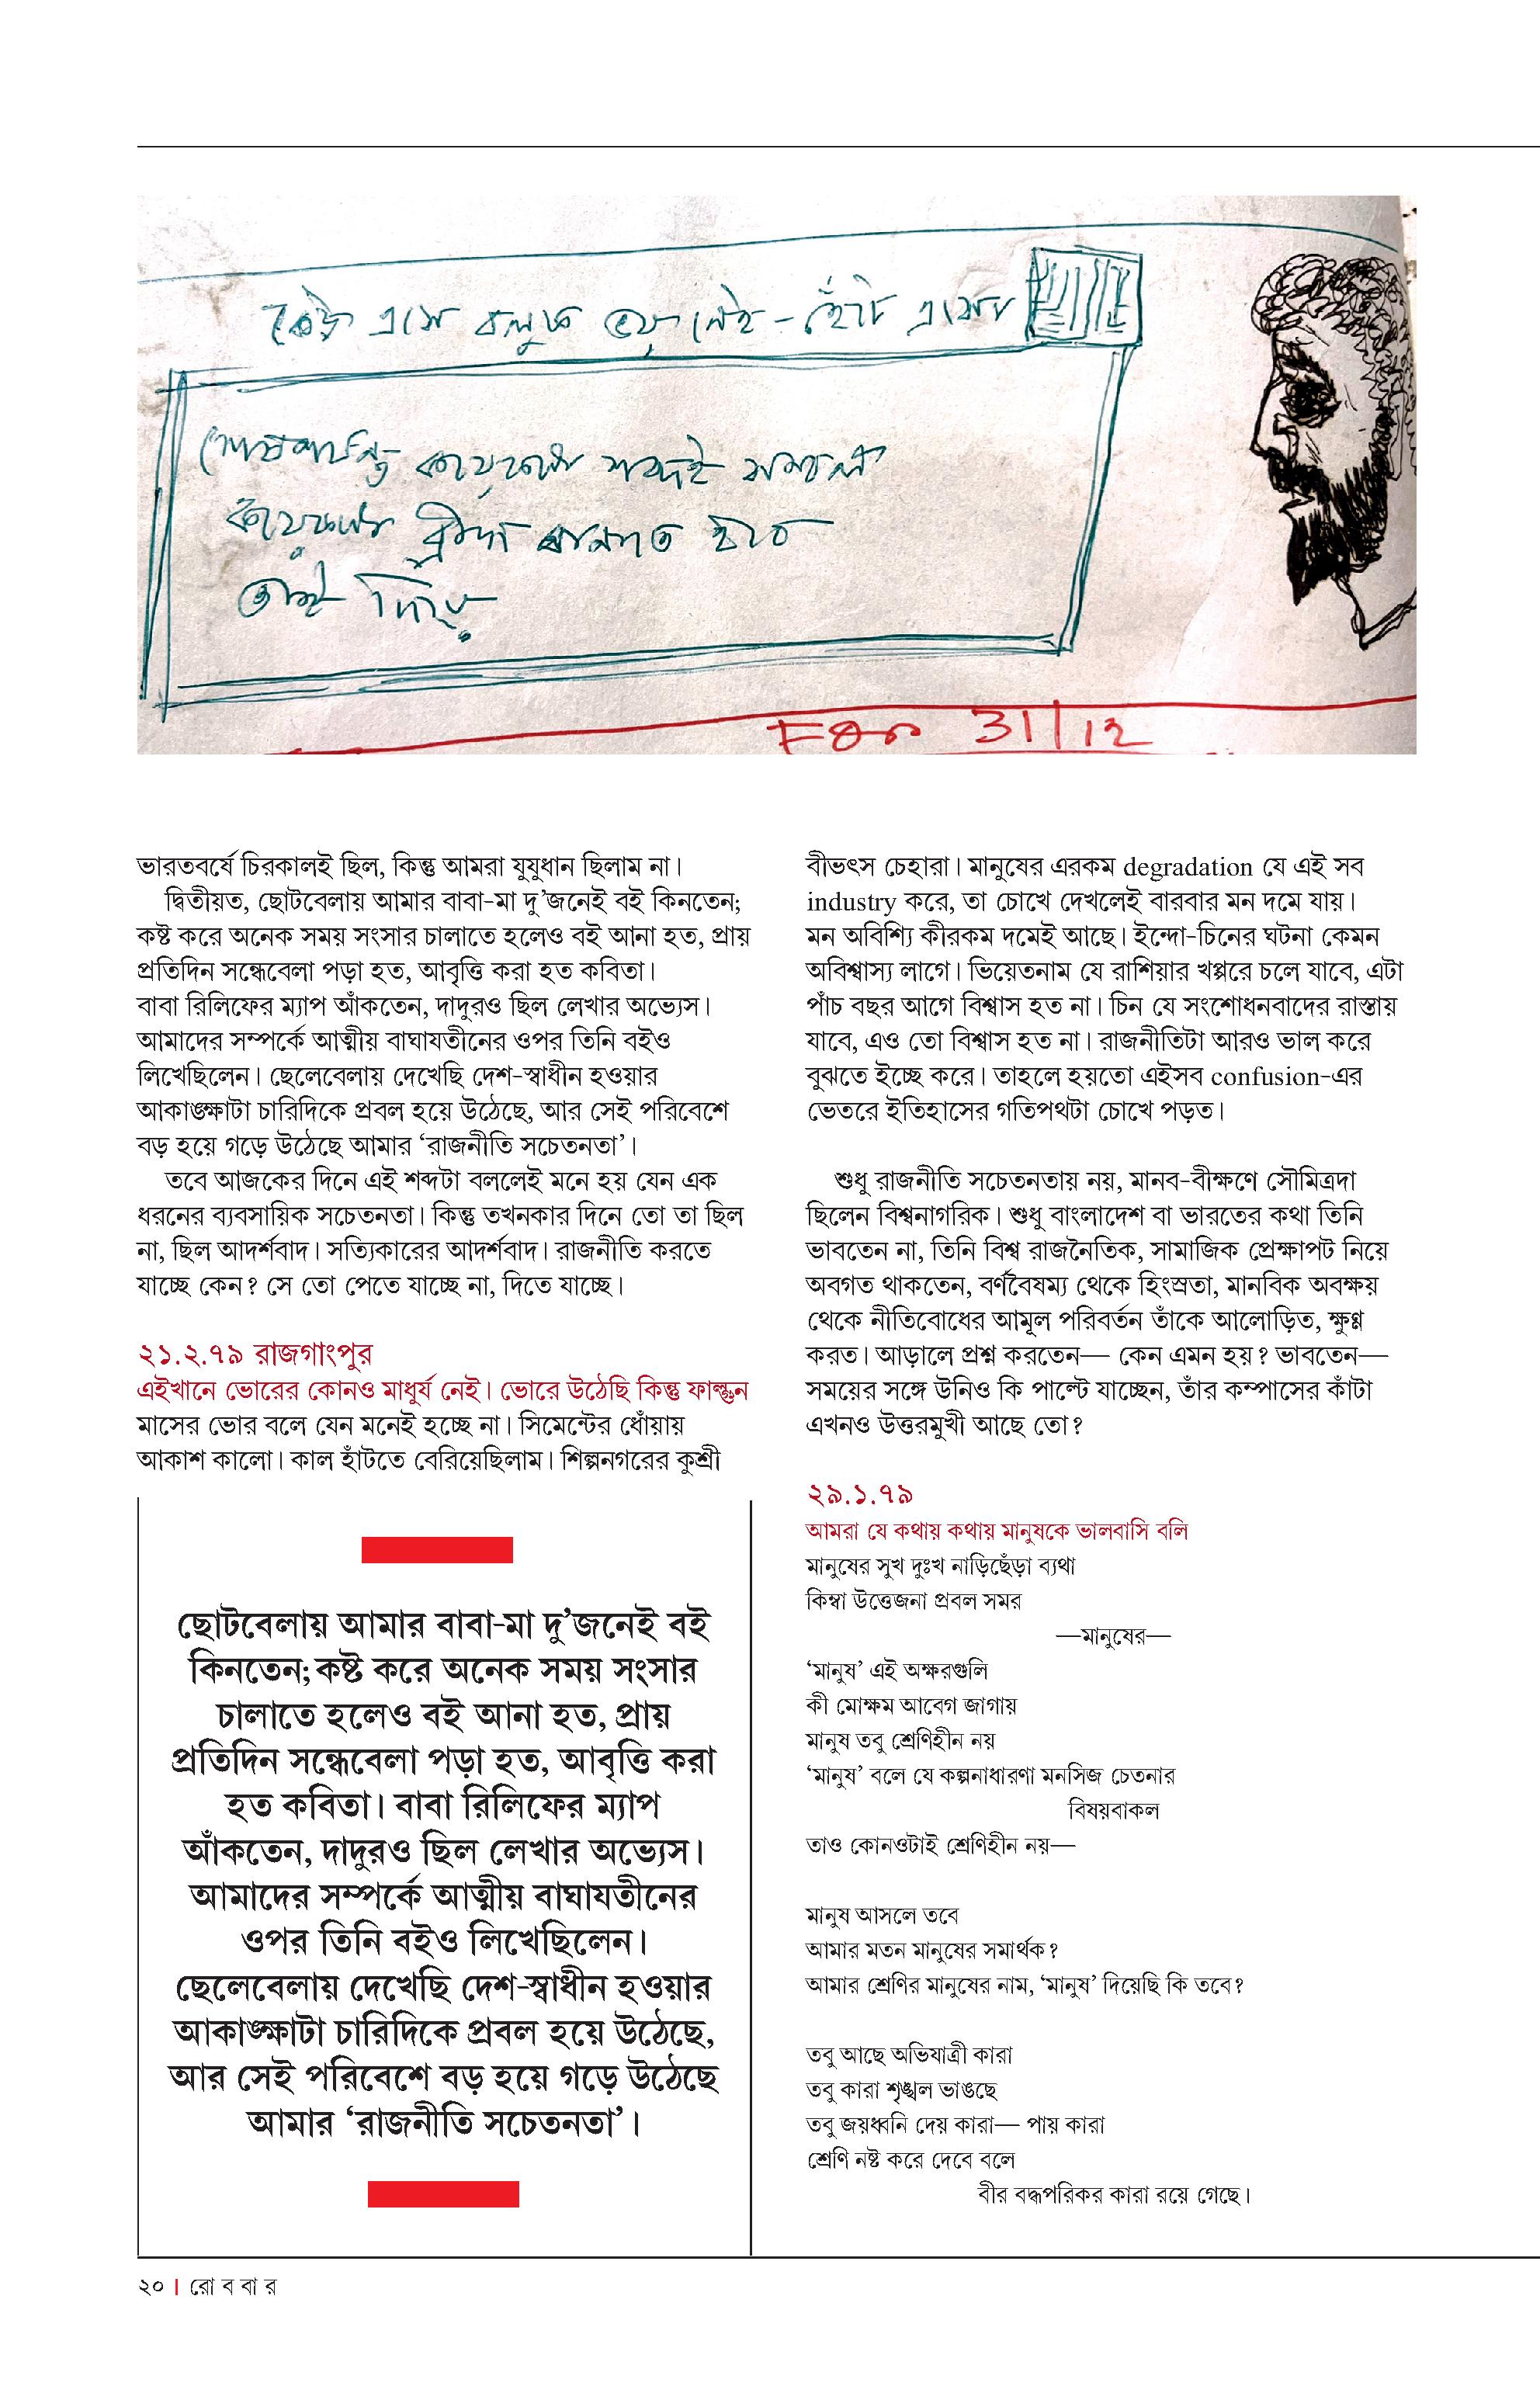 কেউ এসে বলুক ভয় নেই - হেঁটে এসেছ
কয়েকটা শব্দই সম্বল
তাই দিয়ে
For 31/12
ভারতবর্ষে চিরকালই ছিল, কিন্তু আমরা যুযুধান ছিলাম না।
দ্বিতীয়ত, ছোটবেলায় আমার বাবা-মা দু’জনেই বই কিনতেন;
কষ্ট করে অনেক সময় সংসার চালাতে হলেও বই আনা হত, প্রায়
প্রতিদিন সন্ধেবেলা পড়া হত, আবৃত্তি করা হত কবিতা।
বাবা রিলিফের ম্যাপ আঁকতেন, দাদুরও ছিল লেখার অভ্যেস।
আমাদের সম্পর্কে আত্মীয় বাঘাযতীনের ওপর তিনি বইও
লিখেছিলেন। ছেলেবেলায় দেখেছি দেশ-স্বাধীন হওয়ার
আকাঙ্ক্ষাটা চারিদিকে প্রবল হয়ে উঠেছে, আর সেই পরিবেশে
বড় হয়ে গড়ে উঠেছে আমার ‘রাজনীতি সচেতনতা’।
তবে আজকের দিনে এই শব্দটা বললেই মনে হয় যেন এক
ধরনের ব্যবসায়িক সচেতনতা। কিন্তু তখনকার দিনে তো তা ছিল
না, ছিল আদর্শবাদ। সত্যিকারের আদর্শবাদ। রাজনীতি করতে
যাচ্ছে কেন? সে তো পেতে যাচ্ছে না, দিতে যাচ্ছে।
২১.২.৭৯ রাজগাংপুর
এইখানে ভোরের কোনও মাধুর্য নেই। ভোরে উঠেছি কিন্তু ফাল্গুন
মাসের ভোর বলে যেন মনেই হচ্ছে না। সিমেন্টের ধোঁয়ায়
আকাশ কালো। কাল হাঁটতে বেরিয়েছিলাম। শিল্পনগরের কুশ্রী
ছোটবেলায় আমার বাবা-মা দু’জনেই বই
কিনতেন; কষ্ট করে অনেক সময় সংসার
চালাতে হলেও বই আনা হত, প্রায়
প্রতিদিন সন্ধেবেলা পড়া হত, আবৃত্তি করা
হত কবিতা। বাবা রিলিফের ম্যাপ
আঁকতেন, দাদুরও ছিল লেখার অভ্যেস।
আমাদের সম্পর্কে আত্মীয় বাঘাযতীনের
ওপর তিনি বইও লিখেছিলেন।
ছেলেবেলায় দেখেছি দেশ-স্বাধীন হওয়ার
আকাঙ্ক্ষাটা চারিদিকে প্রবল হয়ে উঠেছে,
আর সেই পরিবেশে বড় হয়ে গড়ে উঠেছে
আমার ‘রাজনীতি সচেতনতা’।
বীভৎস চেহারা। মানুষের এরকম degradation যে এই সব
industry করে, তা চোখে দেখলেই বারবার মন দমে যায়।
মন অবিশ্যি কীরকম দমেই আছে। ইন্দো-চিনের ঘটনা কেমন
অবিশ্বাস্য লাগে। ভিয়েতনাম যে রাশিয়ার খপ্পরে চলে যাবে, এটা
পাঁচ বছর আগে বিশ্বাস হত না। চিন যে সংশোধনবাদের রাস্তায়
যাবে, এও তো বিশ্বাস হত না। রাজনীতিটা আরও ভাল করে
বুঝতে ইচ্ছে করে। তাহলে হয়তো এইসব confusion-এর
ভেতরে ইতিহাসের গতিপথটা চোখে পড়ত।
শুধু রাজনীতি সচেতনতায় নয়, মানব-বীক্ষণে সৌমিত্রদা
ছিলেন বিশ্বনাগরিক। শুধু বাংলাদেশ বা ভারতের কথা তিনি
ভাবতেন না, তিনি বিশ্ব রাজনৈতিক, সামাজিক প্রেক্ষাপট নিয়ে
অবগত থাকতেন, বর্ণবৈষম্য থেকে হিংস্রতা, মানবিক অবক্ষয়
থেকে নীতিবোধের আমূল পরিবর্তন তাঁকে আলোড়িত, ক্ষুণ্ণ
করত। আড়ালে প্রশ্ন করতেন— কেন এমন হয়? ভাবতেন—
সময়ের সঙ্গে উনিও কি পাল্টে যাচ্ছেন, তাঁর কম্পাসের কাঁটা
এখনও উত্তরমুখী আছে তো?
২৯.১.৭৯
আমরা যে কথায় কথায় মানুষকে ভালবাসি বলি
মানুষের সুখ দুঃখ নাড়িছেঁড়া ব্যথা
কিম্বা উত্তেজনা প্রবল সমর
—মানুষের—
‘মানুষ’ এই অক্ষরগুলি
কী মোক্ষম আবেগ জাগায়
মানুষ তবু শ্রেণিহীন নয়
‘মানুষ’ বলে যে কল্পনাধারণা মনসিজ চেতনার
বিষয়বাকল
তাও কোনওটাই শ্রেণিহীন নয়—
মানুষ আসলে তবে
আমার মতন মানুষের সমার্থক?
আমার শ্রেণির মানুষের নাম, ‘মানুষ’ দিয়েছি কি তবে?
তবু আছে অভিযাত্রী কারা
তবু কারা শৃঙ্খল ভাঙছে
তবু জয়ধ্বনি দেয় কারা— পায় কারা
শ্রেণি নষ্ট করে দেবে বলে
বীর বদ্ধপরিকর কারা রয়ে গেছে।
২০ | রো ব বা র